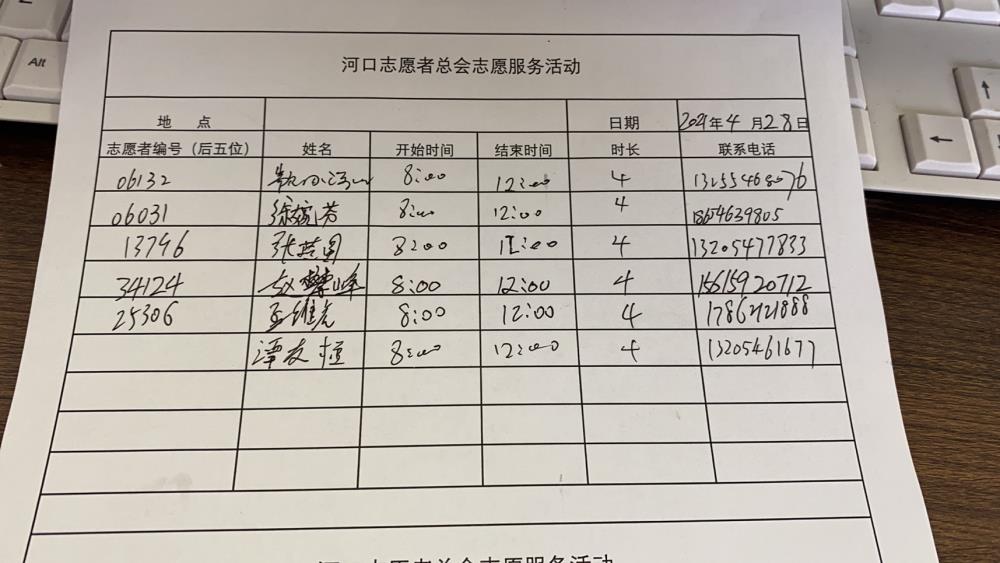 Alt
河口志愿者总会志愿服务活动
地 点 日期 2021年4月28日
志愿者编号（后五位） 姓名 开始时间 结束时间 时长 联系电话
06132 8:00 12:00 4
06031 8:00 12:00 4 18654639805
13796 张燕圆 8:00 12:00 4 13205477833
34124 8:00 12:00 4 15615920712
25306 8:00 12:00 4
谭友 8:00 12:00 4 13205461677
河口志愿者总会志愿服务活动